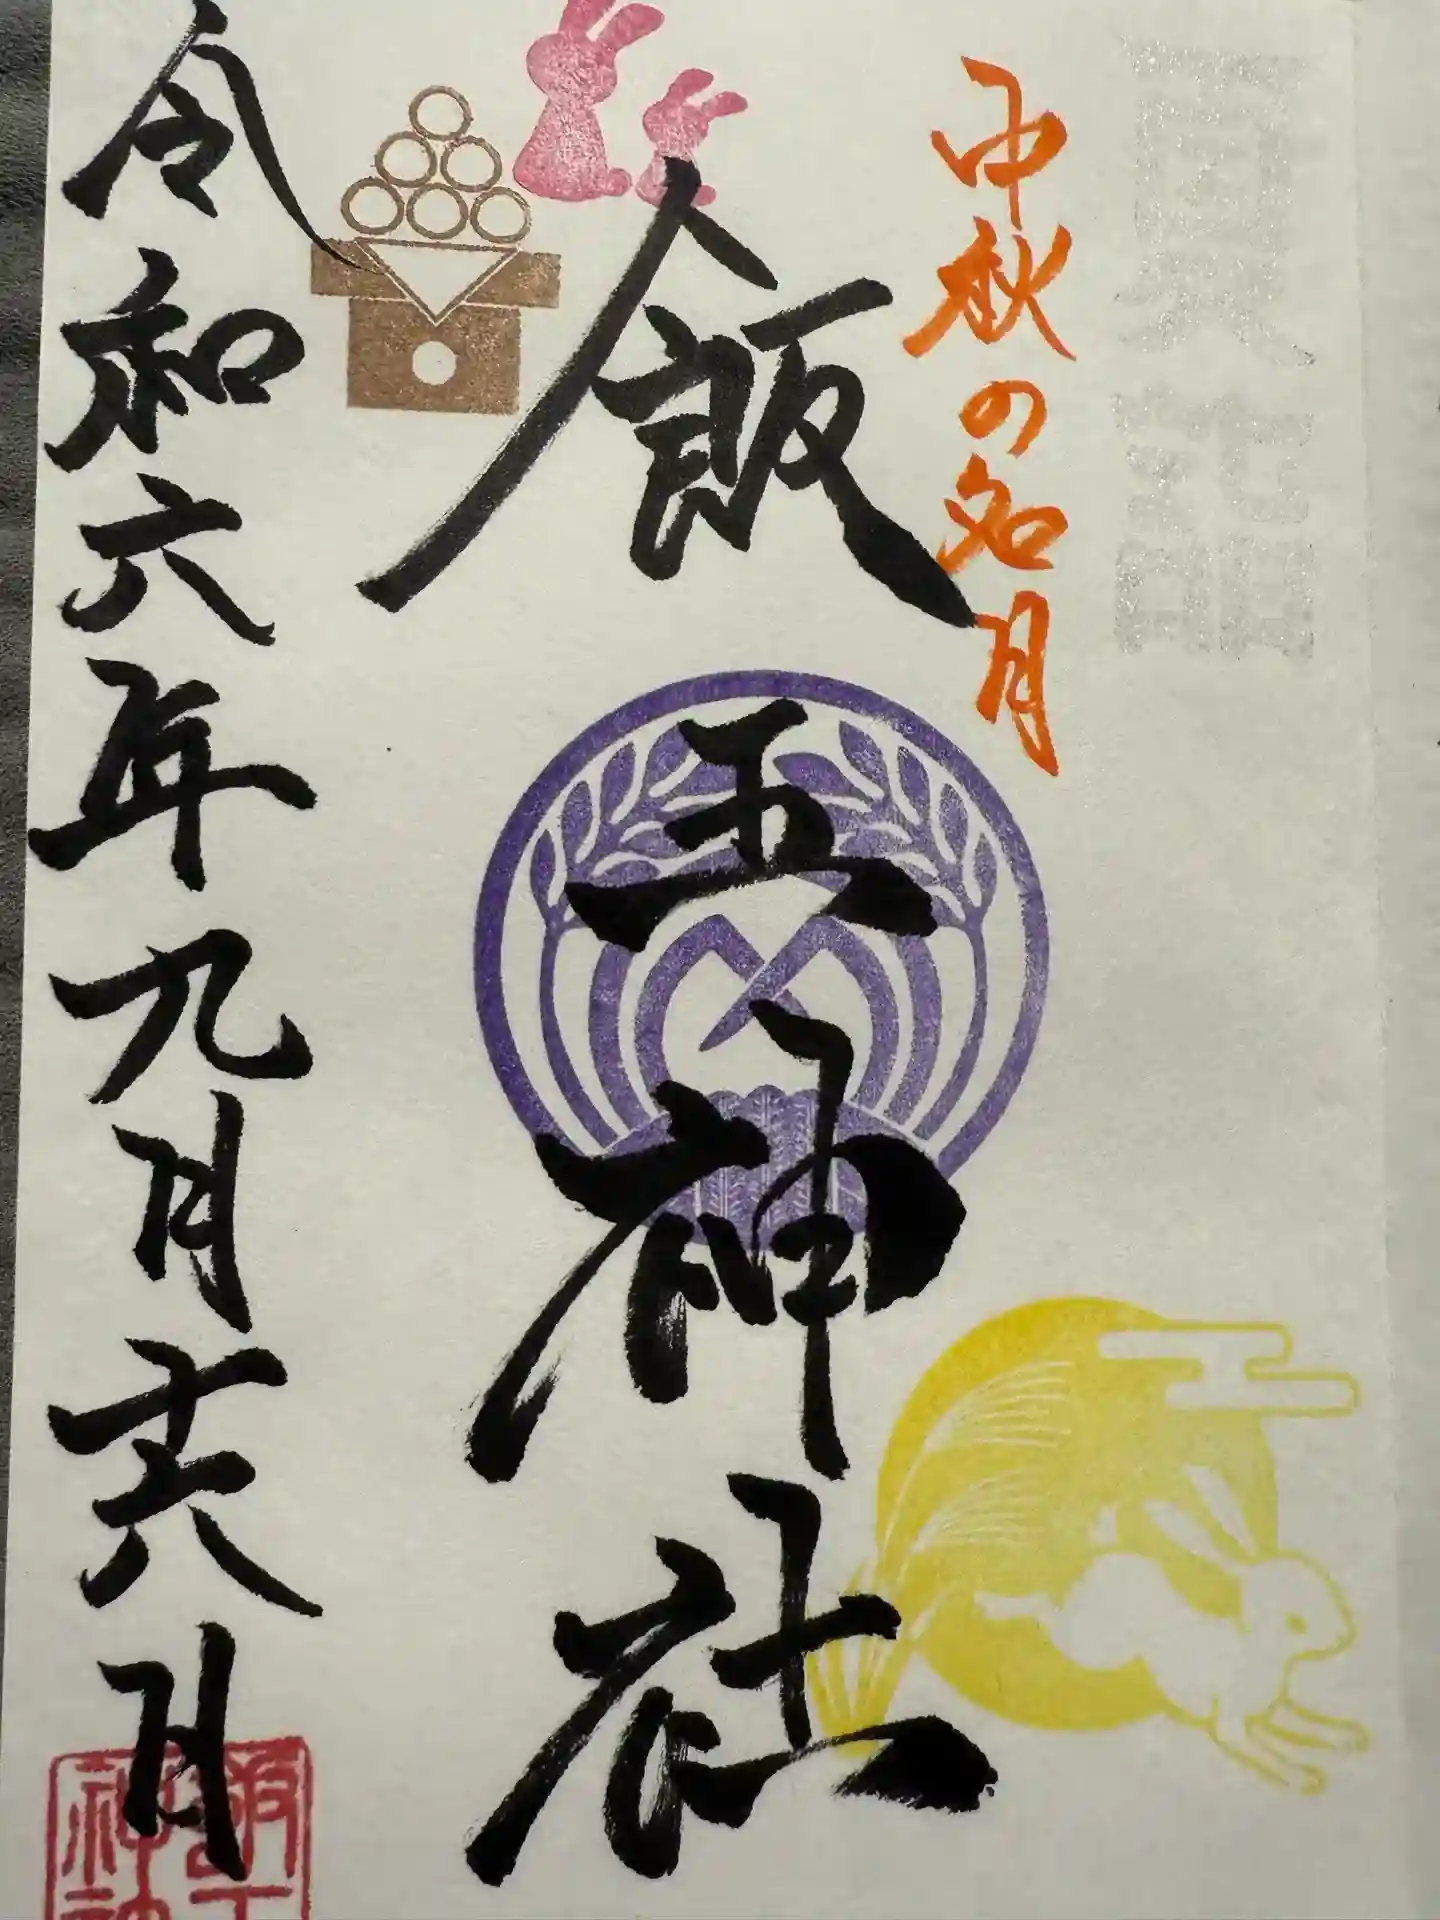 中秋の名月
飯玉神社
令和六年九月十六日